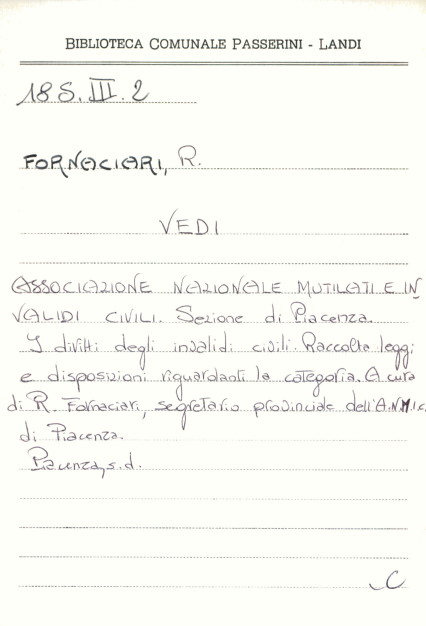 BIBLIOTECA COMUNALE PASSERINI - LANDI
18 S. III. 2
FORNACIARI, R.
VEDI
ASSOCIAZIONE NAZIONALE MUTILATI E IN
VALIDI CIVILI. Sezione di Piacenza.
I diritti degli invalidi civili. Raccolta leggi
e disposizioni riguardanti la categoria. A cura
di R. Fornaciari, segretario provinciale dell'A.N.M.I.C.
di Piacenza.
Piacenza, s.d.
C